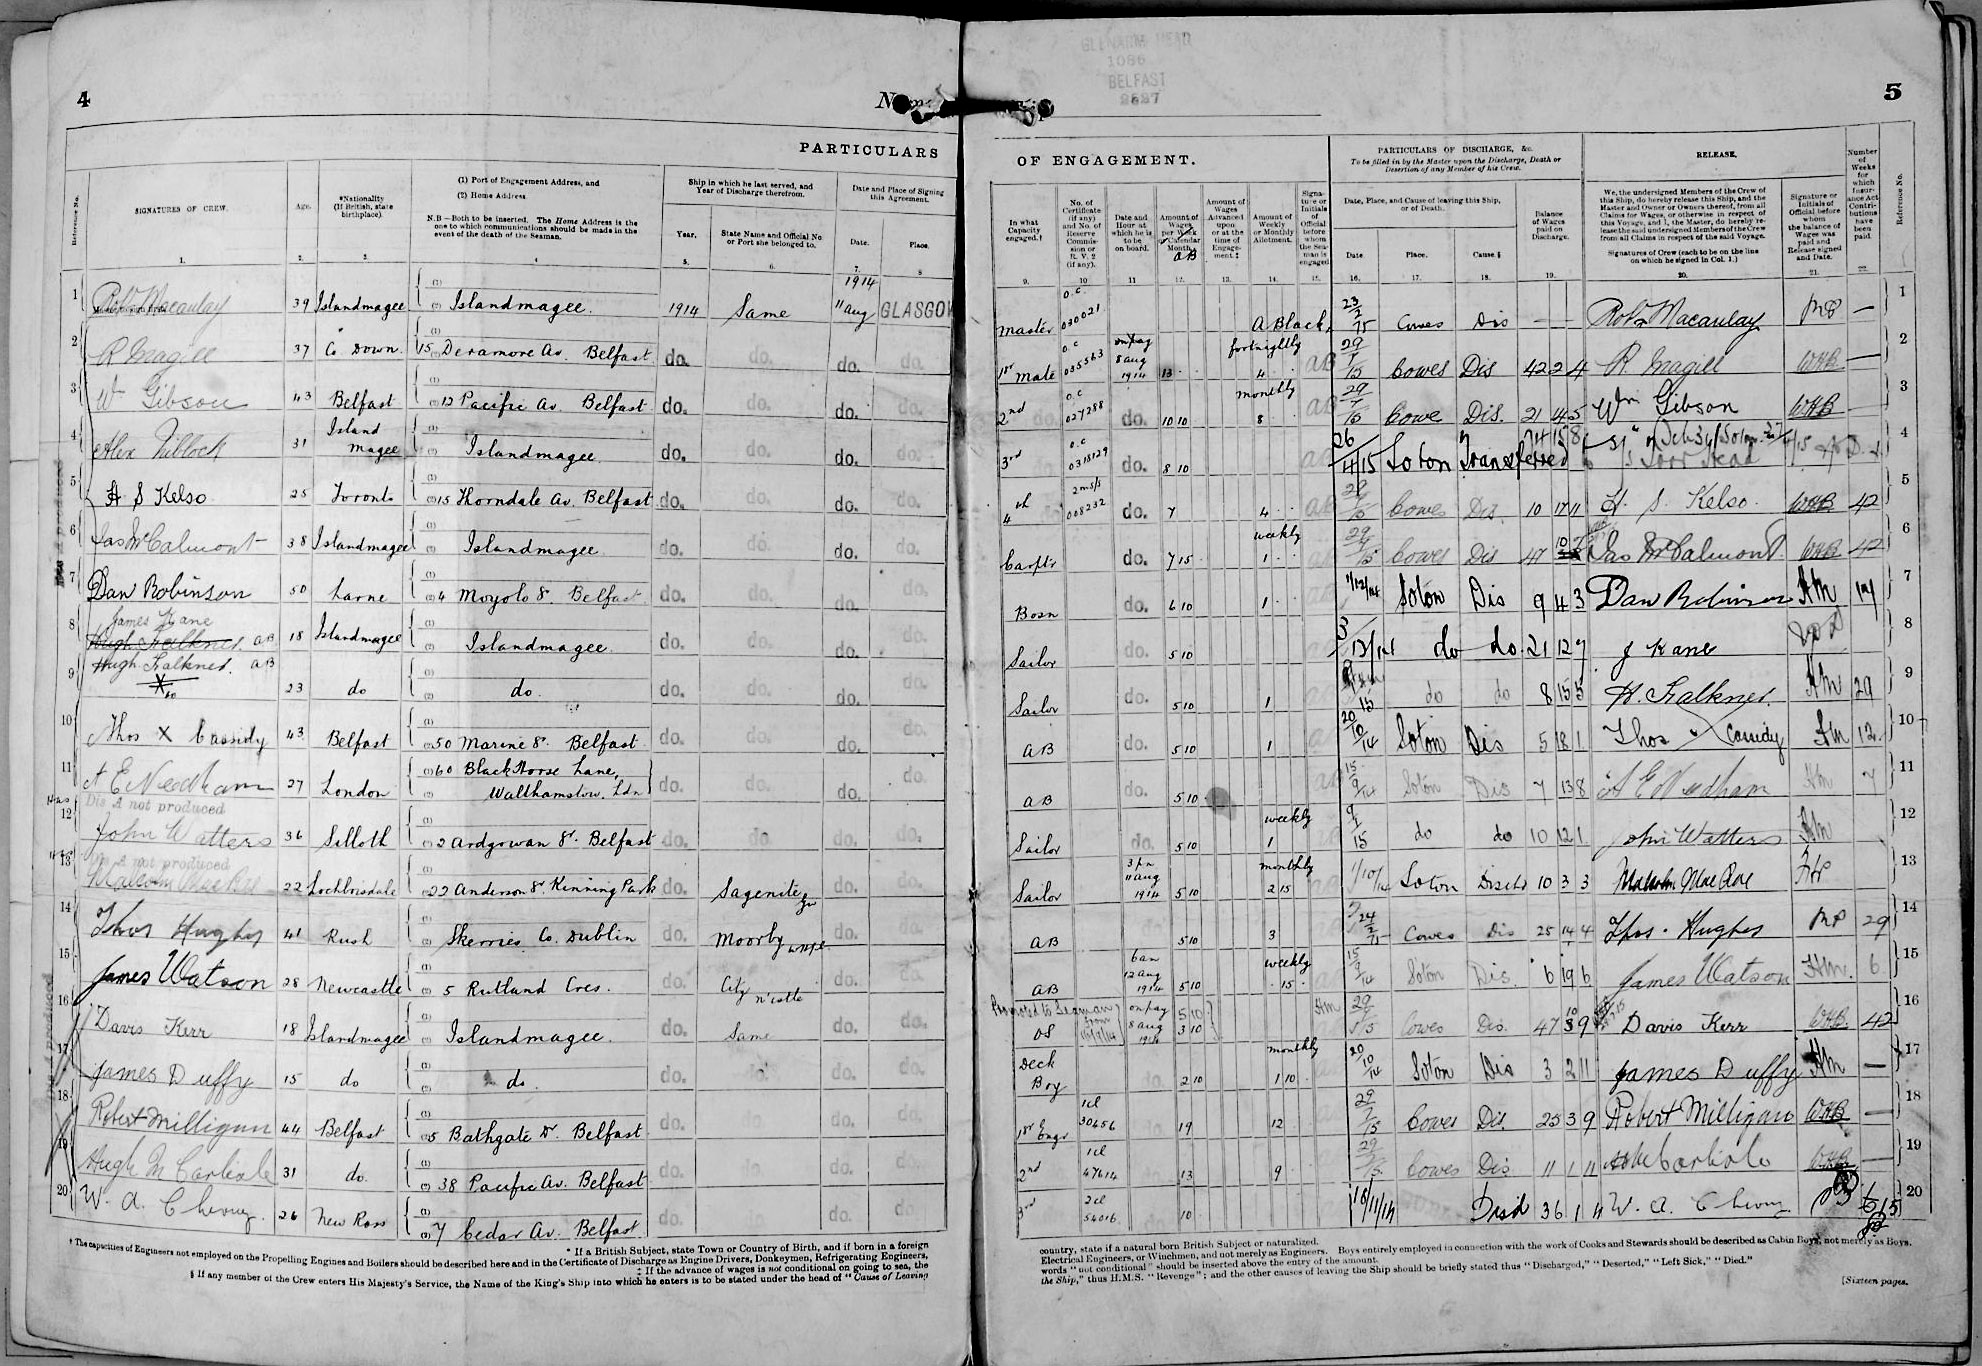 4
PARTICULARS
Reference No.
SIGNATURES OF CREW.
Age.
*Nationality
(If British, state
birthplace).
(1) Port of Engagement Address, and
(2) Home Address.
N.B—Both to be inserted. The Home Address is the
one to which communications should be made in the
event of the death of the Seaman.
Ship in which he last served, and
Year of Discharge therefrom.
Year.
State Name and Official No
or Port she belonged to.
Date and Place of Signing
this Agreement.
Date.
Place.
1. 2. 3. 4. 5. 6. 7. 8
1914
1 Robt Macaulay 39 Islandmagee (1) (2) Islandmagee. 1914 Same 11 Aug GLASGOW
2 R Magill 37 Co Down. 15 Deramore Av. Belfast do. do. do. do.
3 W Gibson 43 Belfast 12 Pacific Av. Belfast do. do. do. do.
4 Alex Niblock 31 Island magee Islandmagee do. do. do. do.
5 H S Kelso 25 Toronto 15 Thorndale Av. Belfast do. do. do. do.
6 Jas McCalmont 38 Islandmagee Islandmagee do. do. do. do.
7 Dan Robinson 50 Larne 4 Belfast do. do. do. do.
James Kane
8 Hugh Falkner. AB 18 Islandmagee Islandmagee do. do. do. do.
Hugh Falkner. AB
9 23 do do. do. do. do. do.
10 Thos X Cassidy 43 Belfast 50 Marine St. Belfast do. do. do. do.
11 A E Needham 27 London 60 Black Horse Lane,
Walthamstow. Ldn do. do. do. do.
Dis A not produced
12 John Watters 36 Silloth 2 Ardgowan St. Belfast do. do. do. do.
Dis A not produced
13 Malcolm MacRae 22 Lochboisdale 22 Anderson St Kinning Park do. Sagenite do. do.
14 Thos Hughes 41 Rush Skerries Co. Dublin do. Moorby do. do.
15 James Watson 28 Newcastle 5 Rutland Cres. do. City N'castle do.
16 Davis Kerr 18 Islandmagee Islandmagee. do. Same do. do.
17 James Duffy 15 do do. do. do. do. do.
18 Robert Milligan 44 Belfast 5 Bathgate Dr. Belfast do. do. do. do.
19 Hugh McCarlisle 31 do. 38 Pacific Av. Belfast do. do. do. do.
20 W. A. 26 New Ross 7 Cedar Av. Belfast do. do. do. do.
* If a British Subject, state Town or Country of Birth, and if born in a foreign
† The capacities of Engineers not employed on the Propelling Engines and Boilers should be described here and in the Certificate of Discharge as Engine Drivers, Donkeymen, Refrigerating Engineers,
‡ If the advance of wages is not conditional on going to sea, the
§ If any member of the Crew enters His Majesty's Service, the Name of the King's Ship into which he enters is to be stated under the head of "Cause of Leaving
GLENARM HEAD
1086
BELFAST
2827
5
OF ENGAGEMENT.
PARTICULARS OF DISCHARGE, &c.
To be filled in by the Master upon the Discharge, Death or
Desertion of any Member of his Crew.
RELEASE.
In what
Capacity
engaged.†
No. of
Certificate
(if any)
and No. of
Reserve
Commis-
sion or
R. V. 2
(if any).
Date and
Hour at
which he is
to be
on board.
Amount of
Wages
per Week
or Calendar
Month.
AB
Amount of
Wages
Advanced
upon
or at the
time of
Engage-
ment.‡
Amount of
Weekly
or Monthly
Allotment.
Signa-
ture or
Initials
of
Official
before
whom
the Sea-
man is
engaged
Date, Place, and Cause of leaving this Ship,
or of Death.
Date
Place.
Cause §
Balance
of Wages
paid on
Discharge.
We, the undersigned Members of the Crew of
this Ship, do hereby release this Ship, and the
Master and Owner or Owners thereof, from all
Claims for Wages, or otherwise in respect of
this Voyage, and I, the Master, do hereby re-
lease the said undersigned Members of the Crew
from all Claims in respect of the said Voyage.
Signatures of Crew (each to be on the line
on which he signed in Col. 1.)
Signature or
Initials of
Official before
whom
the balance of
Wages was
paid and
Release signed
and Date.
Number
of
Weeks
for
which
Insur-
ance Act
Contri-
butions
have
been
paid.
Reference No.
9. 10 11 12. 13. 14. 15. 16. 17. 18. 19. 20. 21.
Master O.C 030021 A Black, 23/2/15 Cowes Dis — Robt Macaulay — 1
1st Mate O.C 035563 on pay 8 Aug 1914 13 fortnightly 4 29/1/15 Cowes Dis 42 2 4 R. Magill WHB — 2
2nd O.C 027288 do. 10 10 monthly 8 Cowe Dis. 21 4 5 Wm Gibson WHB 3
3rd O.C 0318129 do. 8 10 26/4/15 Soton Transferred 14 15 8 Torr Head 4
4th 008232 do. 7 4 Cowes Dis 10 17 11 H. S. Kelso. WHB 42 5
Carptr do. 7 15 weekly 1 Cowes Dis 47 Jas McCalmont. WHB 42 6
Bosn do. 6 10 1 1/12/14 Soton Dis 9 4 3 Dan Robinson 7
Sailor do. 5 10 do do. 21 12 7 J Kane 8
Sailor do. 5 10 1 do do 8 15 5 H. Falkner. 29 9
AB do. 5 10 1 20/10/14 Soton Dis 5 18 1 Thos X Cassidy 12. 10
AB 5 10 15/9/14 Soton Dis 7 13 8 A E Needham 7 11
Sailor do. 5 10 weekly 1 do do 10 12 1 John Watters 12
Sailor 11 Aug 1914 5 10 monthly 2 15 1/10/14 Soton Disch 10 3 3 Malcolm MacRae 13
AB 5 10 3 Cowes Dis 25 14 4 Thos. Hughes 29 14
AB 6 am 12 Aug 1914 5 10 weekly 15 Soton Dis. 6 19 6 James Watson 6 15
Promoted to Seaman from
OS on pay 8 Aug 1914 5 10 3 10 Cowes Dis. 47 Davis Kerr WHB. 42 16
Deck Boy 2 10 monthly 1 10 20/10/14 Soton Dis 3 2 11 James Duffy — 17
1st Engr 1 cl 30656 19 12 Cowes Dis. 25 3 9 Robert Milligan WHB — 18
2nd 1 cl 47614 13 9 Cowes Dis 11 1 11 McCarlisle WHB — 19
3rd 2 cl 54016 10 16/11/14 Disd 36 1 4 W. A. 20
country, state if a natural born British Subject or naturalized.
Electrical Engineers, or Winchmen, and not merely as Engineers. Boys entirely employed in connection with the work of Cooks and Stewards should be described as Cabin Boys, not merely as Boys.
words "not conditional" should be inserted above the entry of the amount.
the Ship," thus H.M.S. "Revenge"; and the other causes of leaving the Ship should be briefly stated thus "Discharged," "Deserted," "Left Sick," "Died."
[Sixteen pages.